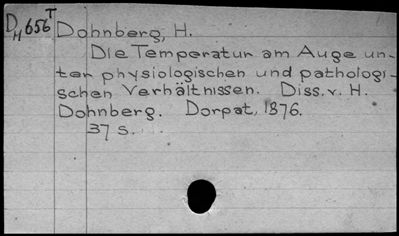 DH656T Dohnberg, H.
Die Temperatur am Auge un-
ter physiologischen und pathologi-
schen Verhältnissen. Diss. v. H.
Dohnberg. Dorpat, 1876.
37 s.